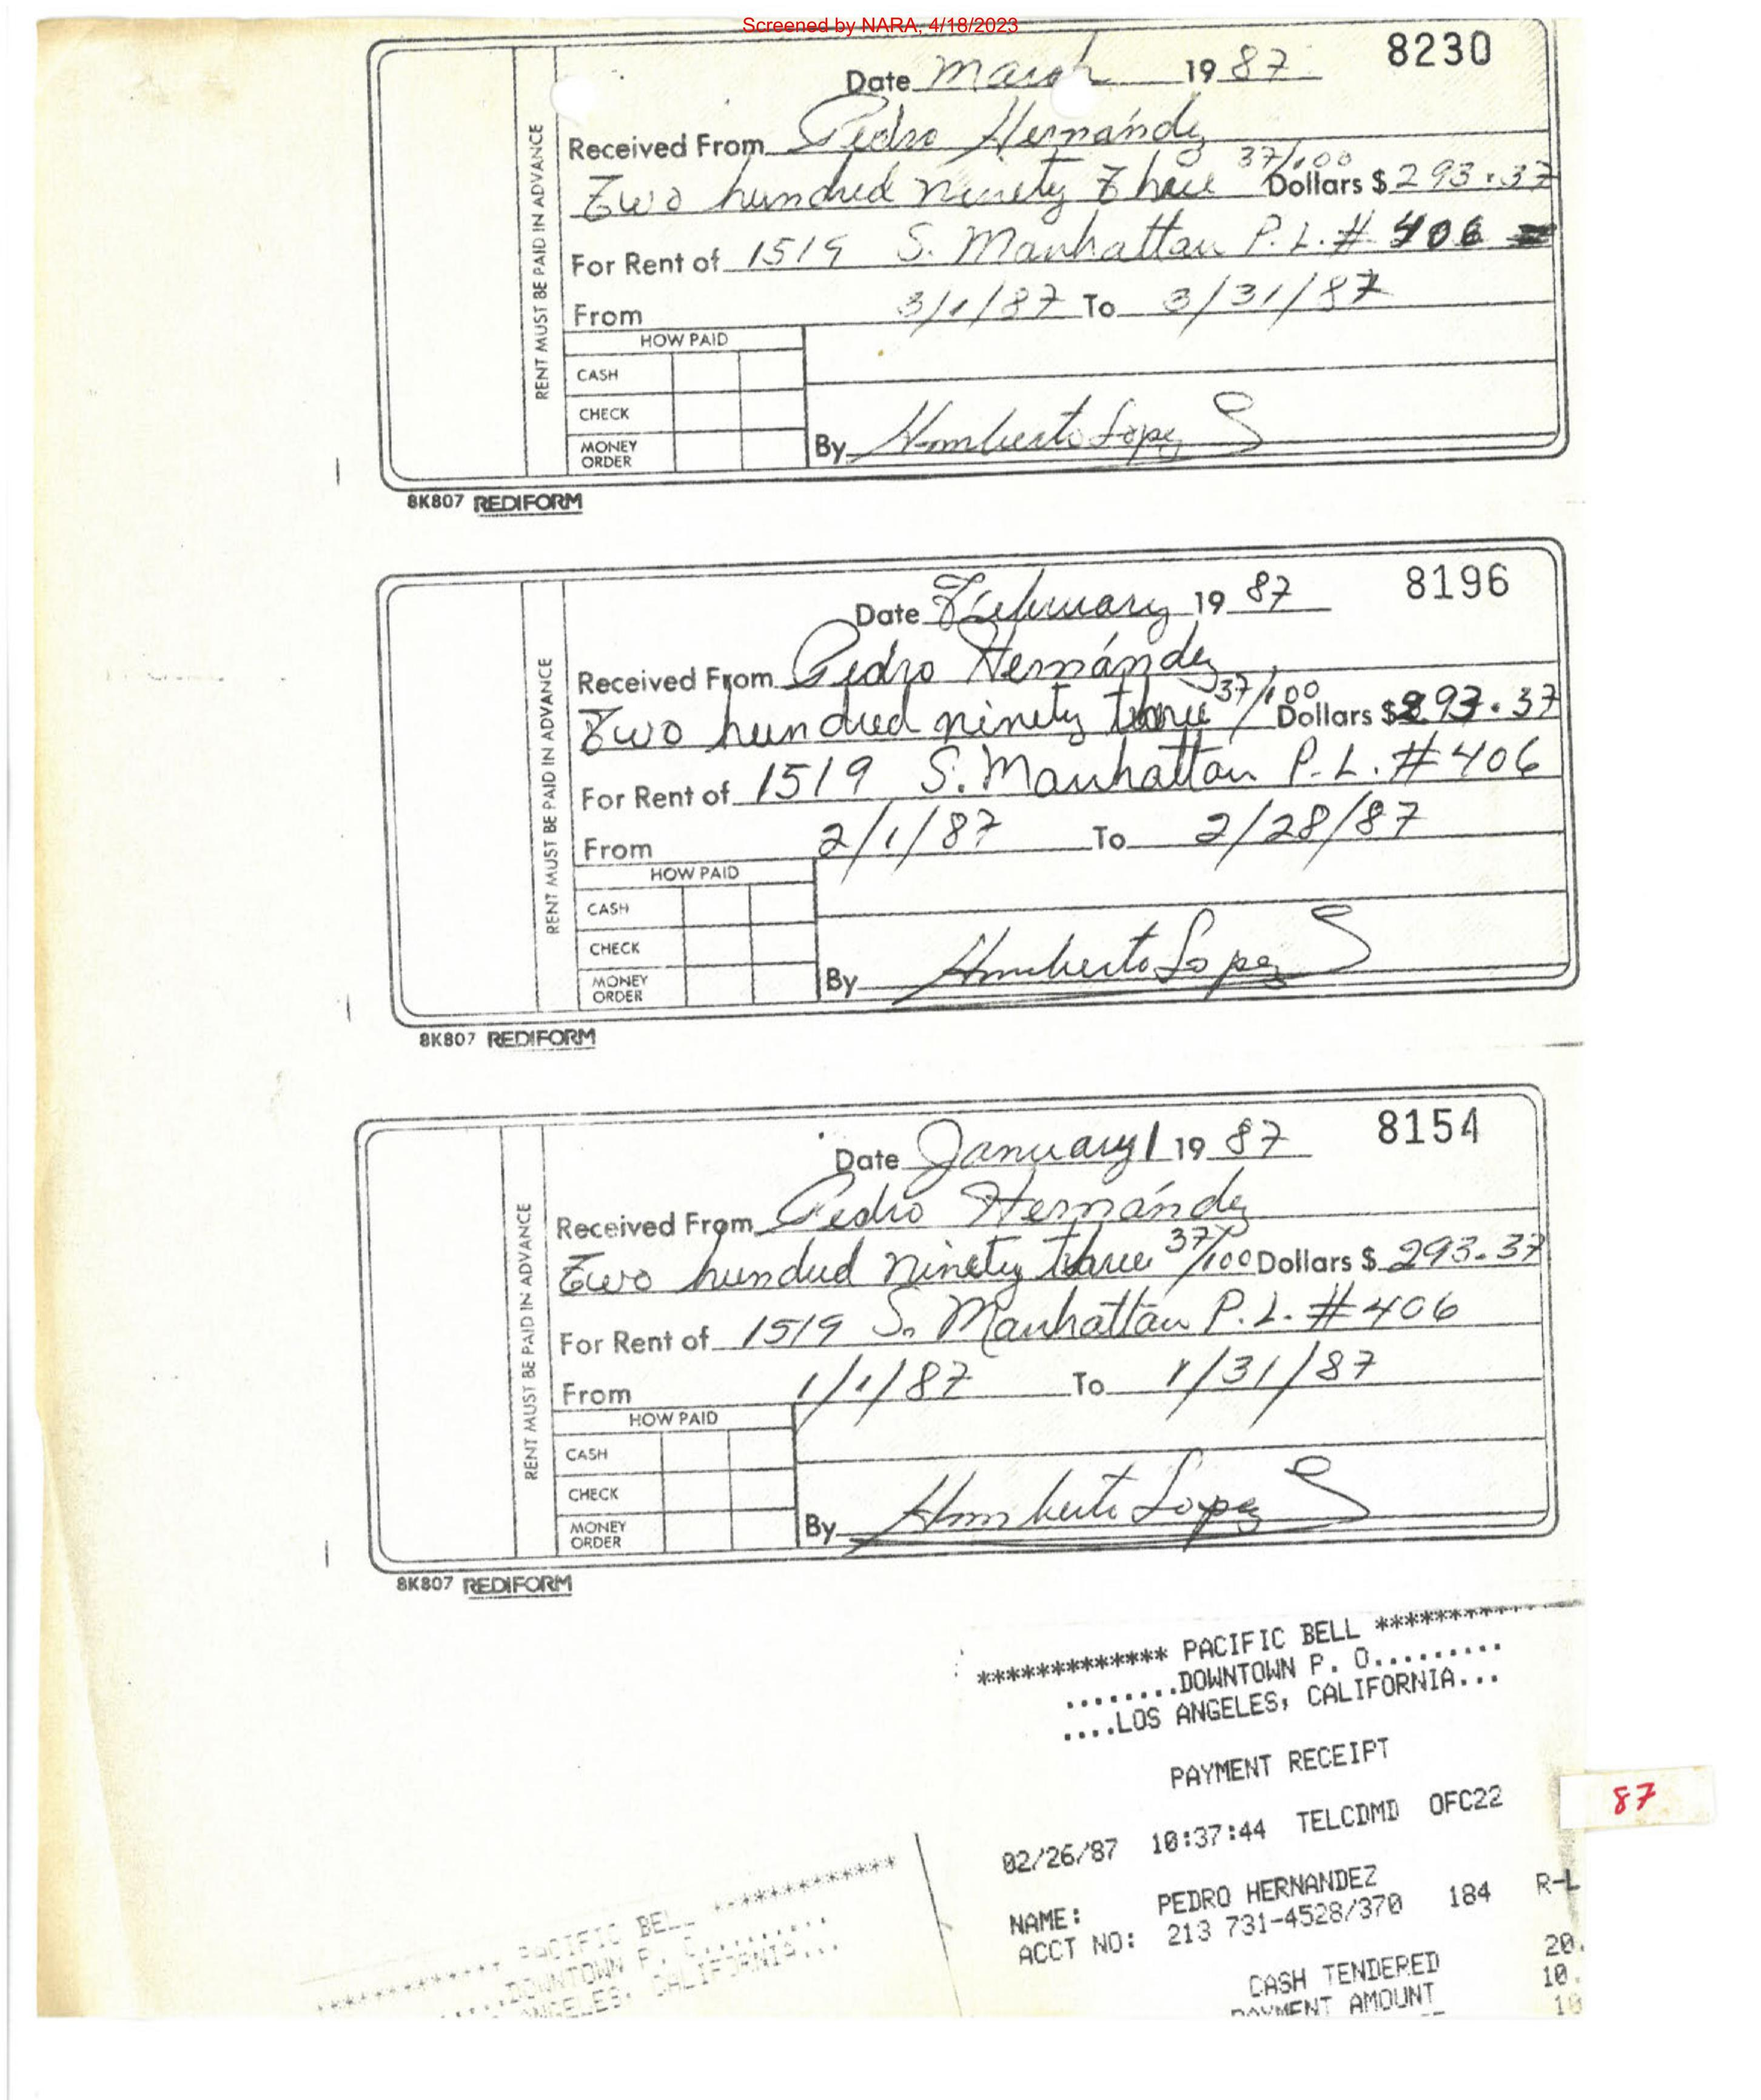 Screened by NARA, 4/18/2023
8230
Date March 19 87
RENT MUST BE PAID IN ADVANCE
Received From Pedro Hernández
Two hundred ninety three 37/100 Dollars $ 293.37
For Rent of 1519 S. Manhattan P.L. # 406
From 3/1/87 To 3/31/87
HOW PAID
CASH
CHECK
MONEY ORDER
By Humberto Lopez S
8K807 REDIFORM
8196
Date February 19 87
RENT MUST BE PAID IN ADVANCE
Received From Pedro Hernández
Two hundred ninety three 37/100 Dollars $ 293.37
For Rent of 1519 S. Manhattan P.L. # 406
From 2/1/87 To 2/28/87
HOW PAID
CASH
CHECK
MONEY ORDER
By Humberto Lopez S
8K807 REDIFORM
8154
Date January 1 19 87
RENT MUST BE PAID IN ADVANCE
Received From Pedro Hernández
Two hundred ninety three 37/100 Dollars $ 293.37
For Rent of 1519 S. Manhattan P.L. # 406
From 1/1/87 To 1/31/87
HOW PAID
CASH
CHECK
MONEY ORDER
By Humberto Lopez S
8K807 REDIFORM
************* PACIFIC BELL **********
........DOWNTOWN P. O.........
....LOS ANGELES, CALIFORNIA...
PAYMENT RECEIPT
87
02/26/87 10:37:44 TELCDMD OFC22
NAME: PEDRO HERNANDEZ
ACCT NO: 213 731-4528/370 184 R-L
CASH TENDERED 20.
PAYMENT AMOUNT 10.
10
************* PACIFIC BELL *************
.....DOWNTOWN P. O.........
ANGELES, CALIFORNIA...